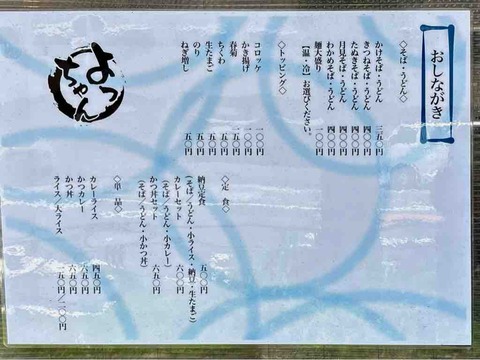 おしながき
◇そば・うどん◇
かけそば・うどん 三五〇円
きつねそば・うどん 四〇〇円
たぬきそば・うどん 四〇〇円
月見そば・うどん 四〇〇円
わかめそば・うどん 四〇〇円
麺大盛り 一〇〇円
【温・冷】お選びください。
◇トッピング◇
コロッケ 一〇〇円
かき揚げ 一〇〇円
春菊 一五〇円
ちくわ 一五〇円
生たまご 五〇円
のり 五〇円
ねぎ増し 五〇円
よっちゃん
◇定食◇
納豆定食 五〇〇円
(そば/うどん・小ライス・納豆・生たまご)
カレーセット 六〇〇円
(そば/うどん・小カレー)
かつ丼セット 六五〇円
(そば/うどん・小かつ丼)
◇単品◇
カレーライス 四五〇円
かつカレー 六五〇円
かつ丼 六五〇円
ライス/大ライス 一五〇円/二〇〇円